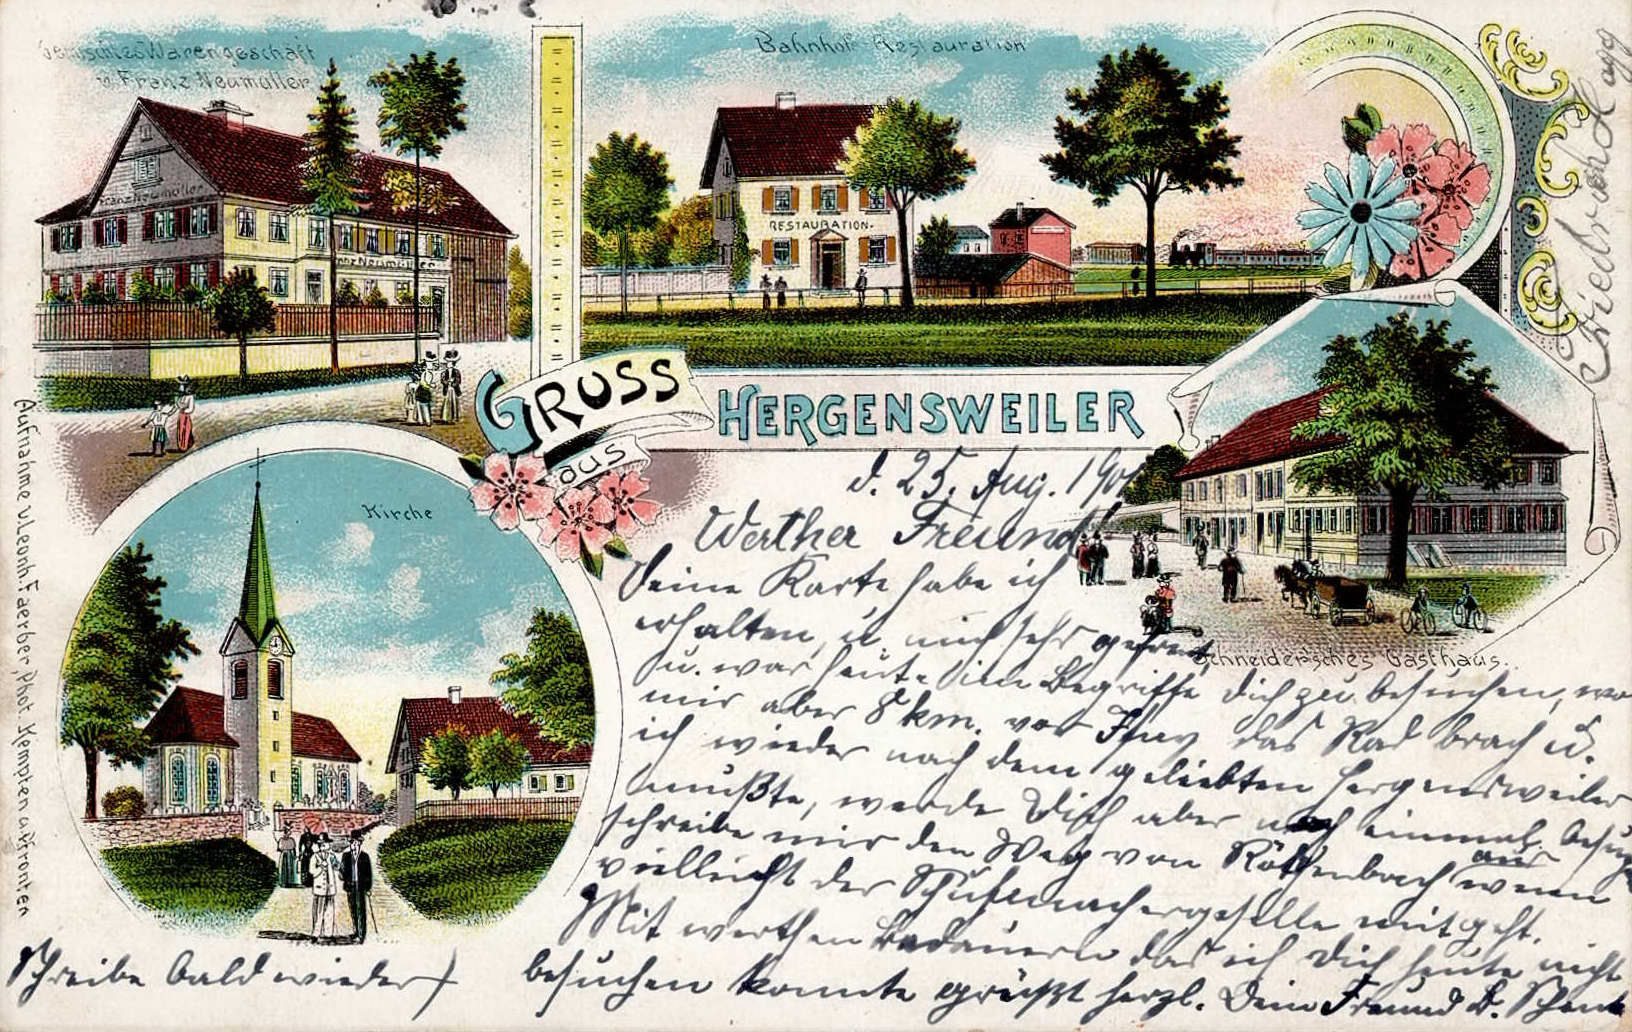 Gemischtes Warengeschäft
v. Franz Neumüller
Franz Neumüller
Franz Neumüller
Bahnhof-Restauration
RESTAURATION.
GRUSS
aus
HERGENSWEILER
Kirche
Schneider'sches Gasthaus.
Aufnahme v. Leonh. Faerber, Phot. Kempten u. Pfronten
d. 25. Aug. 190
Werther Freund!
Deine Karte habe ich
erhalten, u. mich sehr gefreut,
u. war heute im Begriffe Dich zu besuchen, wo
mir aber 8 km. vor das Rad brach u.
ich wieder nach dem geliebten Hergensweiler
mußte, werde Dich aber noch einmal besuchen
schreibe mir den Weg von Röthenbach aus wenn
vielleicht der Schuhmachergeselle mitgeht.
Mit werthen Bedauern das ich Dich heute nicht
besuchen konnte grüßt herzl. Dein Freund
Schreibe bald wieder